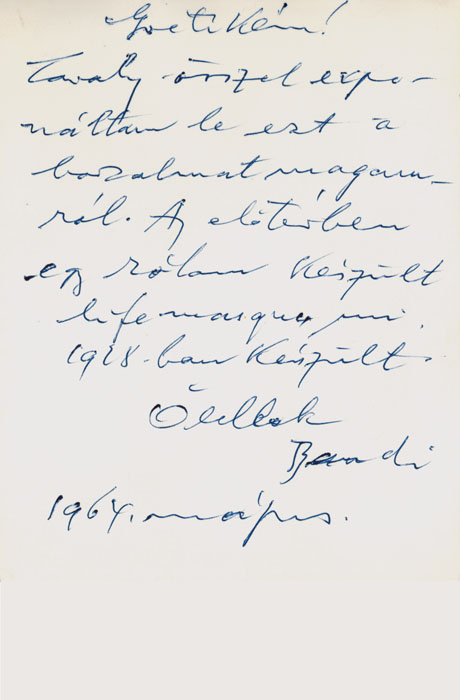 GretiKém!
Tavaly ősszel expo-
náltam le ezt a
borzalmat magam-
ról. Az előtérben
egy rólam készült
life masque, mi
1928-ban készült.
Ölellek
Bandi
1964. május.